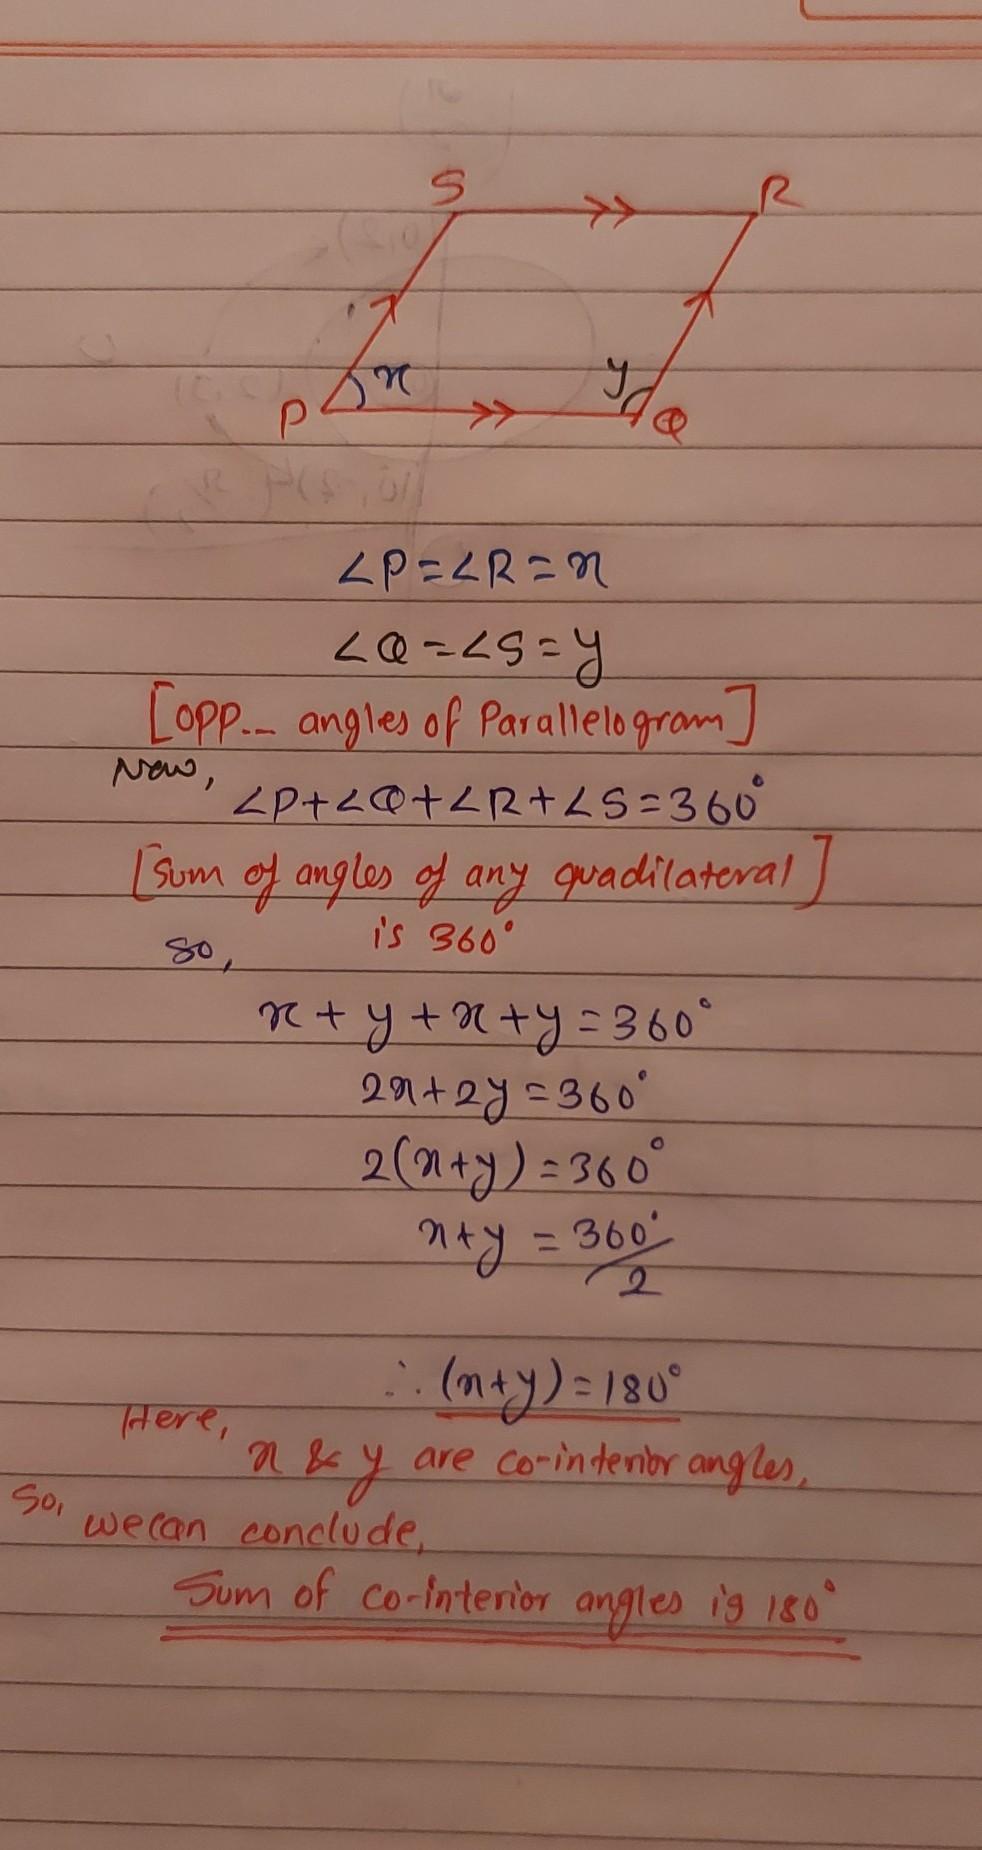 S R
x y
P Q
∠P=∠R=x
∠Q=∠S=y
[OPP... angles of Parallelogram]
Now,
∠P+∠Q+∠R+∠S=360°
[Sum of angles of any quadilateral]
is 360°
so,
x+y+x+y=360°
2x+2y=360°
2(x+y)=360°
x+y=360°/2
∴(x+y)=180°
Here,
x & y are co-interior angles,
So,
we can conclude,
Sum of co-interior angles is 180°